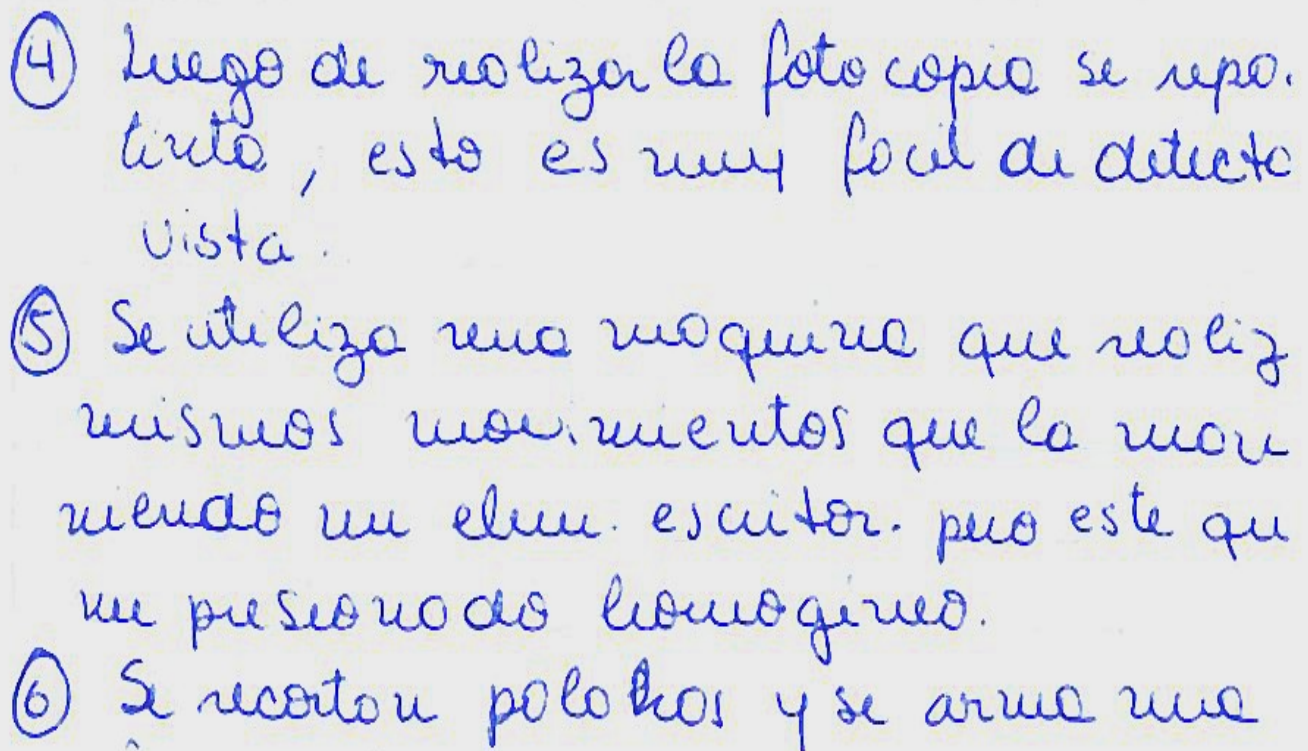 ④ Luego de realizar la fotocopia se repa.
tinta, esto es muy facil de detecta
vista.
⑤ Se utiliza una maquina que realiz
mismos movimientos que la man
niendo un elem. escritor. pero este qu
un presionado homogéneo.
⑥ Se recortan palabras y se arma una